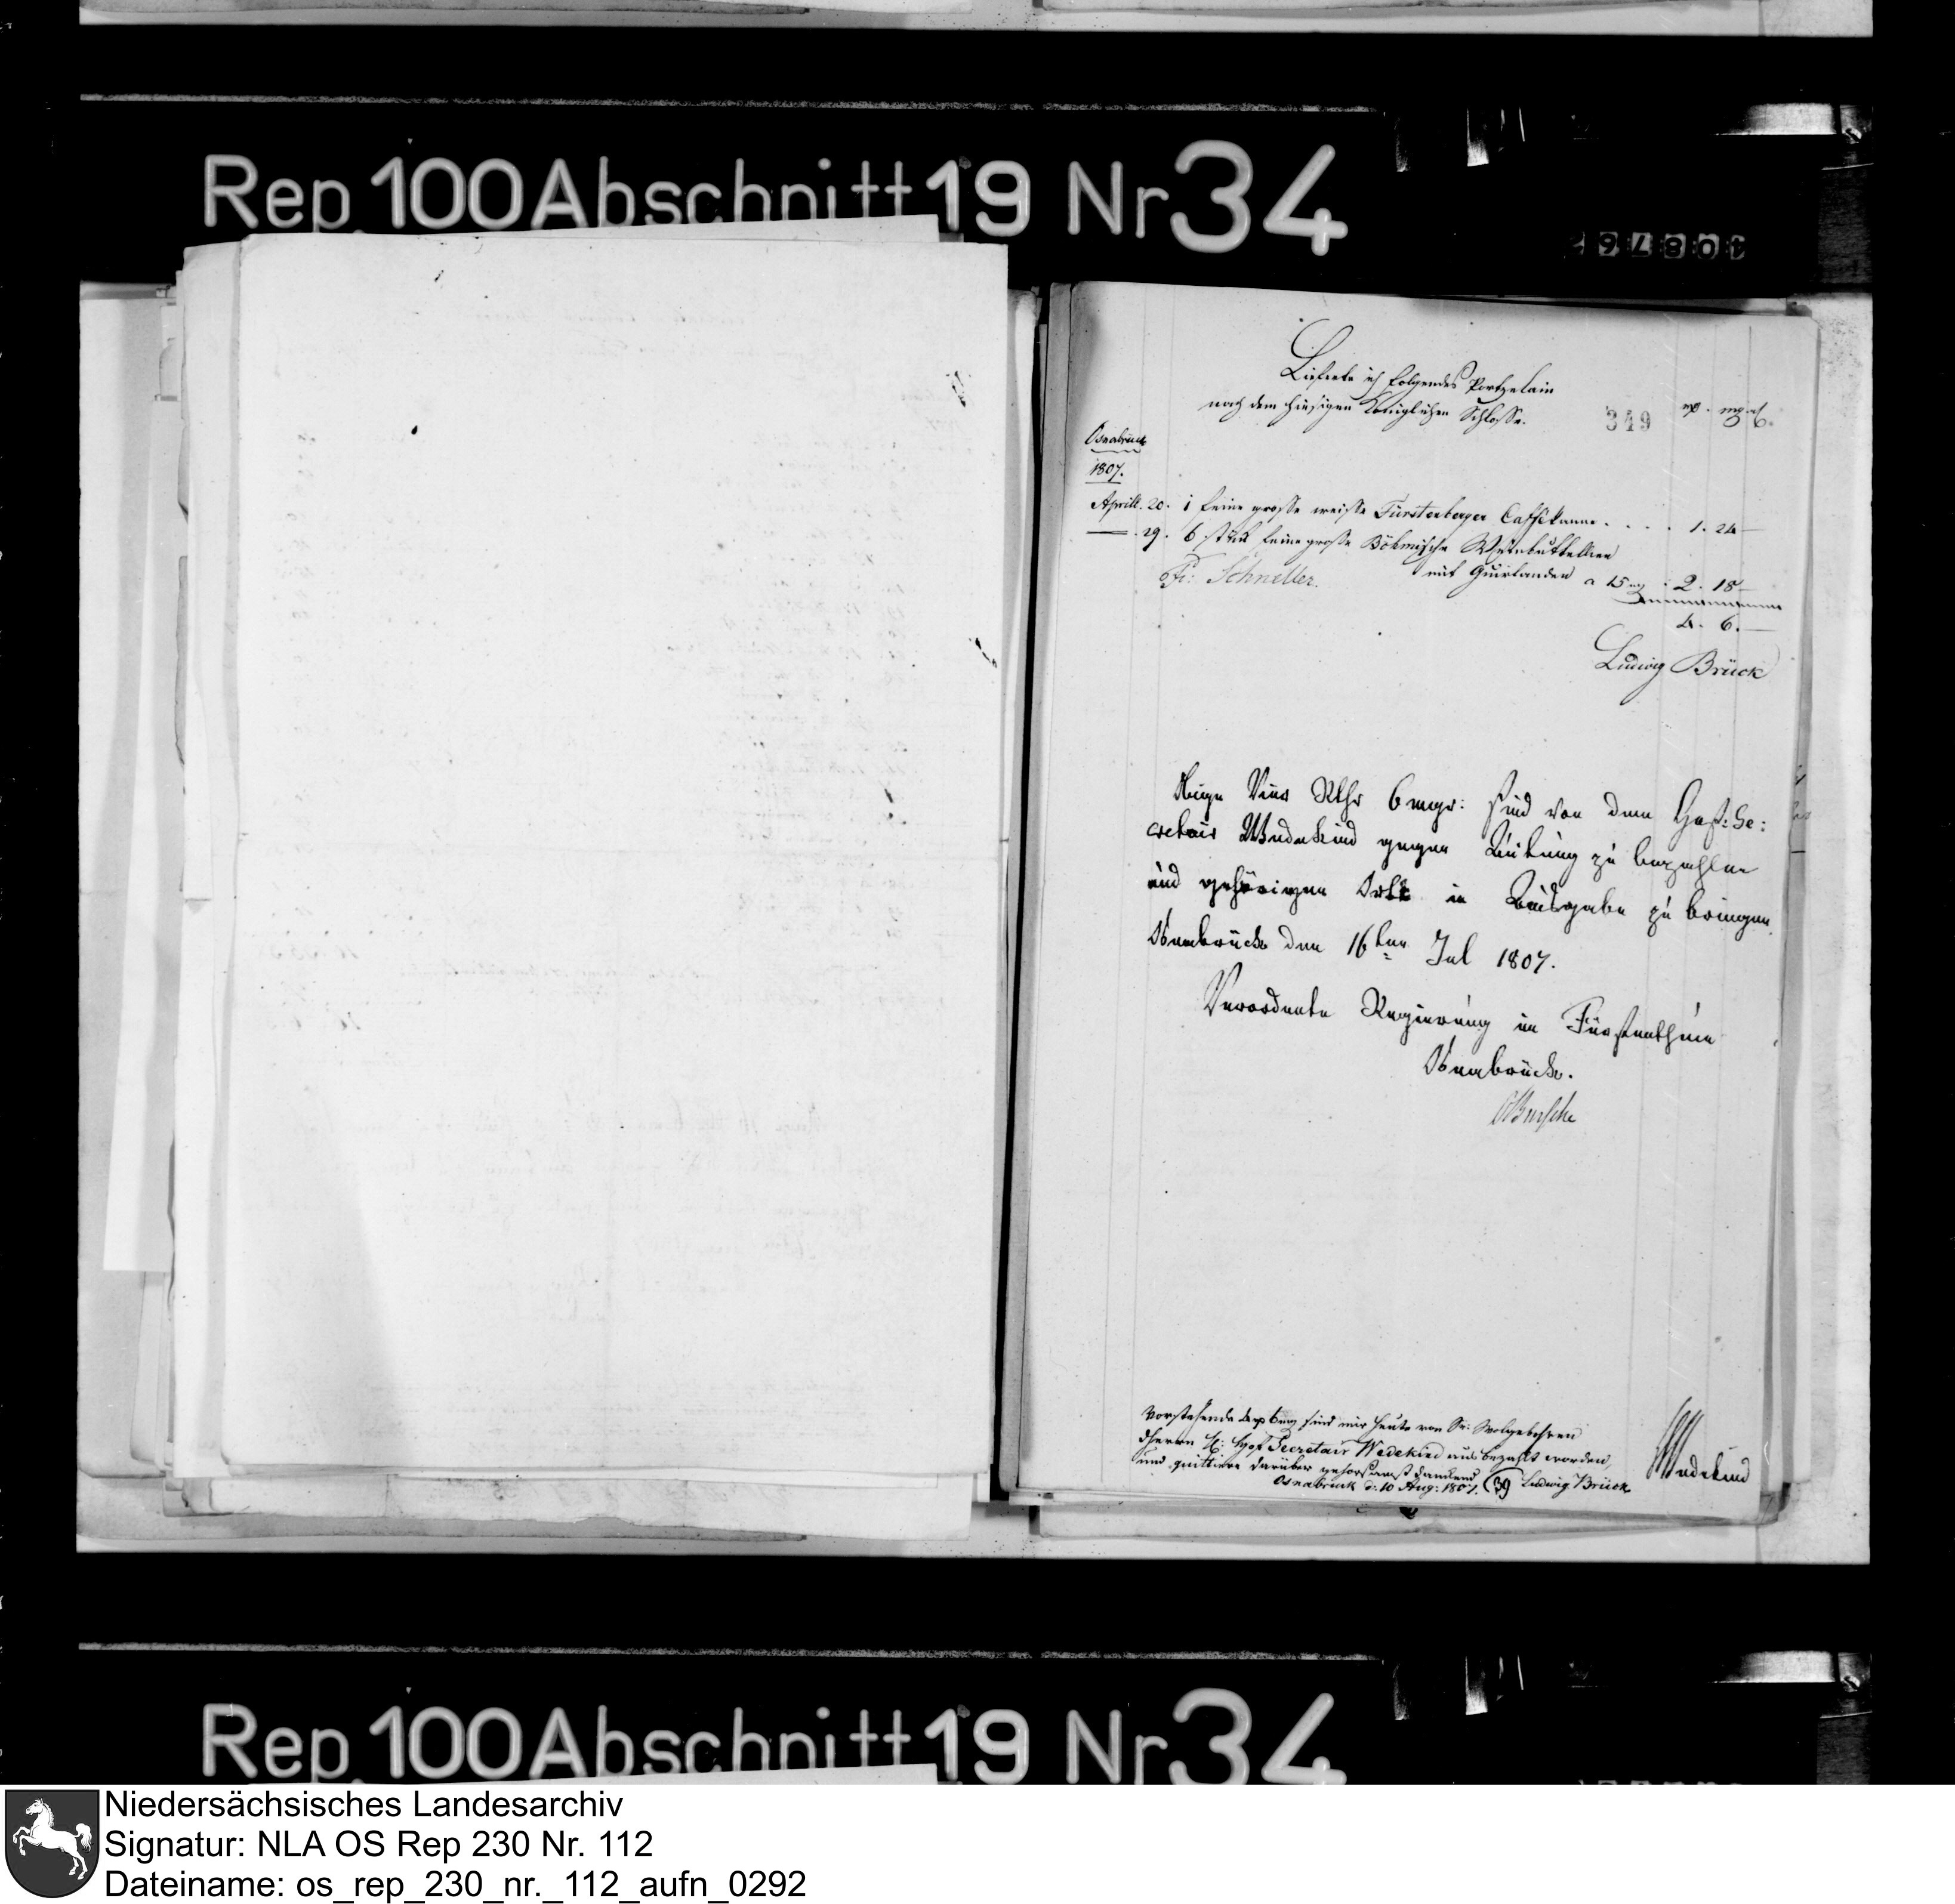 Rep. 100 Abschnitt 19 Nr 34
Lieferte ich folgendes Portzelain
nach dem hiesigen Königlichen Schlosse.
349
Osnabrück
1807.
Aprill. 20. 1 feine grosse weisse Fürstenberger Caffékanne . . . . 1. 24 —
— 29. 6 stück feine grosse Böhmische Weinbuttellien
mit Guirlanden a 15 mg 2. 18 —
Fr: Schneller.
4. 6. —
Ludwig Brück
Obige Vier Rthr 6 mgr: sind von dem Hof: Se:
cretair Wedekind gegen Quitung zu bezahlen
und gehörigen Orts in Ausgabe zu bringen.
Osnabrück den 16ten Jul 1807.
Verordnete Regierung im Fürstenthum
Osnabrück.
Vorstehende sind mir heute von Sr: Wolgebohren
Hof Secretair Wedekind aus bezahlt worden,
und quittiere darüber gehorsamst danckend
Osnabrück d: 10 Aug: 1807. 39 Ludwig Brück
Wedekind
Rep. 100 Abschnitt 19 Nr 34
Niedersächsisches Landesarchiv
Signatur: NLA OS Rep 230 Nr. 112
Dateiname: os_rep_230_nr._112_aufn_0292